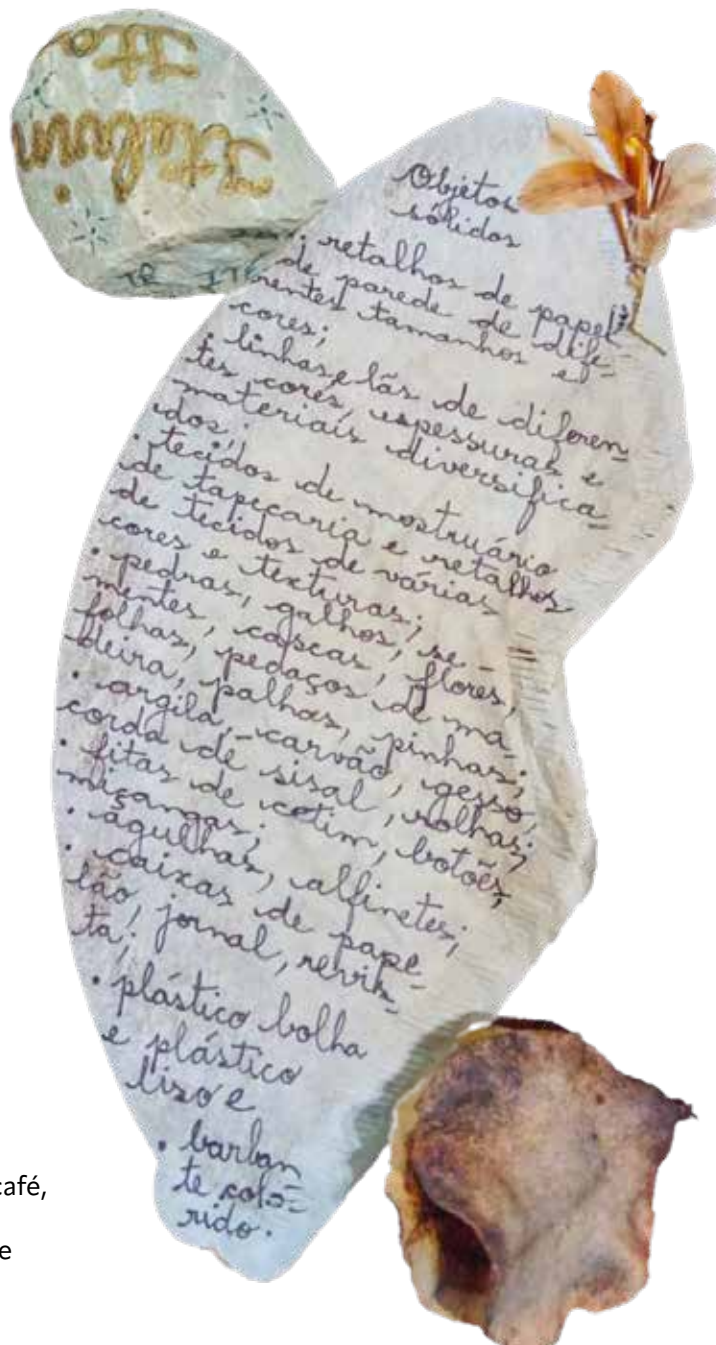 Objetos
sólidos
· retalhos de papel
de parede de dife-
rentes tamanhos e
cores;
· linhas e lãs de diferen-
tes cores, espessuras e
materiais diversifica-
dos;
· tecidos de mostruário
de tapeçaria e retalhos
de tecidos de várias
cores e texturas;
· pedras, galhos, se-
mentes, cascas, flores,
folhas, pedaços de ma-
deira, palhas, pinhas;
· argila, carvão, gesso,
corda de sisal, rolhas;
· fitas de cetim, botões,
miçangas;
· agulhas, alfinetes;
· caixas de pape-
lão, jornal, revis-
ta;
· plástico bolha
e plástico
liso e
· barban
te colo-
rido.
café,
e